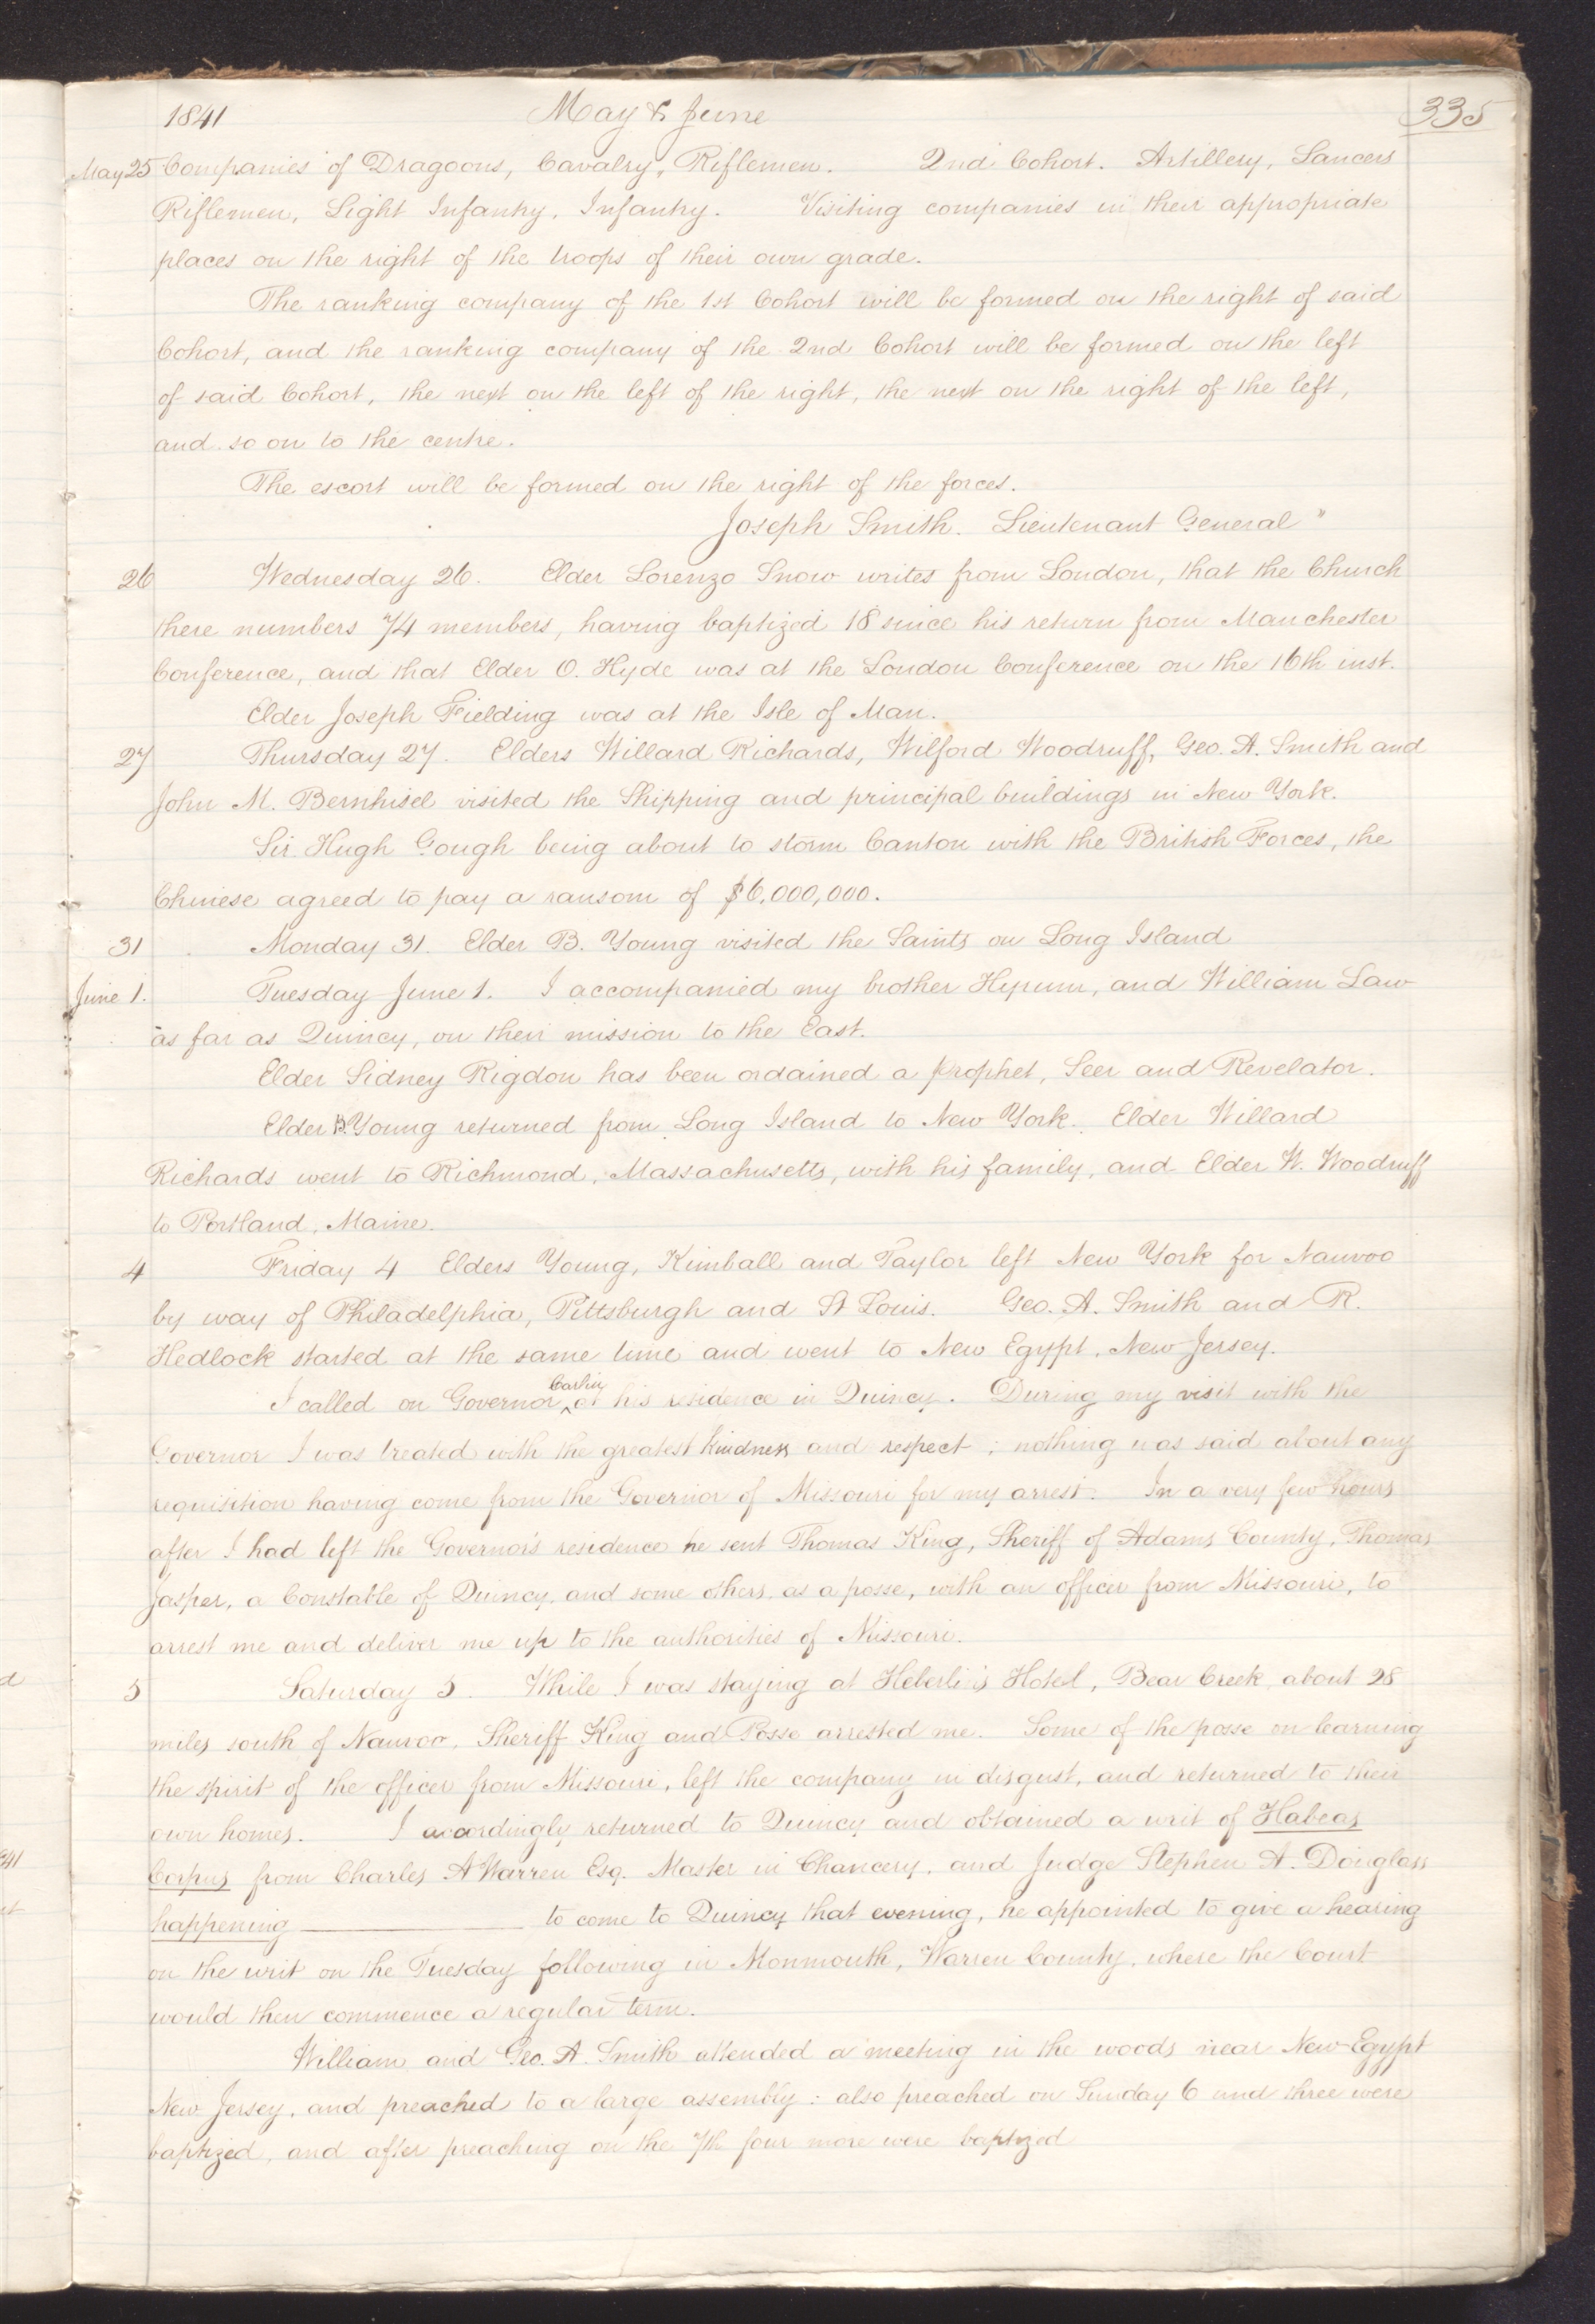 1841 May & June 335
May 25 Companies of Dragoons, Cavalry, Riflemen. 2nd Cohort. Artillery, Lancers
Riflemen, Light Infantry, Infantry. Visiting companies in their appropriate
places on the right of the troops of their own grade.
The ranking company of the 1st Cohort will be formed on the right of said
Cohort, and the ranking company of the 2nd Cohort will be formed on the left
of said Cohort, the next on the left of the right, the next on the right of the left,
and so on to the centre.
The escort will be formed on the right of the forces.
Joseph Smith. Lieutenant General "
26 Wednesday 26. Elder Lorenzo Snow writes from London, that the Church
there numbers 74 members, having baptized 18 since his return from Manchester
Conference, and that Elder O. Hyde was at the London Conference on the 16th inst.
Elder Joseph Fielding was at the Isle of Man.
27 Thursday 27. Elders Willard Richards, Wilford Woodruff, Geo. A. Smith and
John M. Bernhisel visited the Shipping and principal buildings in New York.
Sir Hugh Gough being about to storm Canton with the British Forces, the
Chinese agreed to pay a ransom of $6,000,000.
31 Monday 31. Elder B. Young visited the Saints on Long Island
June 1. Tuesday June 1. I accompanied my brother Hyrum, and William Law
as far as Quincy, on their mission to the East.
Elder Sidney Rigdon has been ordained a prophet, Seer and Revelator.
Elder B. Young returned from Long Island to New York. Elder Willard
Richards went to Richmond, Massachusetts, with his family, and Elder W. Woodruff
to Portland, Maine.
4 Friday 4 Elders Young, Kimball and Taylor left New York for Nauvoo
by way of Philadelphia, Pittsburgh and St Louis. Geo. A. Smith and R.
Hedlock started at the same time and went to New Egypt, New Jersey.
I called on Governor Carlin at his residence in Quincy. During my visit with the
Governor I was treated with the greatest kindness and respect; nothing was said about any
requisition having come from the Governor of Missouri for my arrest. In a very few hours
after I had left the Governor's residence he sent Thomas King, Sheriff of Adams County, Thomas
Jasper, a Constable of Quincy, and some others, as a posse, with an officer from Missouri, to
arrest me and deliver me up to the authorities of Missouri.
5 Saturday 5. While I was staying at Heberlin's Hotel, Bear Creek, about 28
miles south of Nauvoo, Sheriff King and Posse arrested me. Some of the posse on learning
the spirit of the officer from Missouri, left the company in disgust, and returned to their
own homes. I accordingly returned to Quincy and obtained a writ of Habeas
Corpus from Charles A Warren Esq. Master in Chancery, and Judge Stephen A. Douglass
happening to come to Quincy that evening, he appointed to give a hearing
on the writ on the Tuesday following in Monmouth, Warren County, where the Court
would then commence a regular term.
William and Geo. A. Smith attended a meeting in the woods near New Egypt
New Jersey, and preached to a large assembly: also preached on Sunday 6 and three were
baptized, and after preaching on the 7th four more were baptized